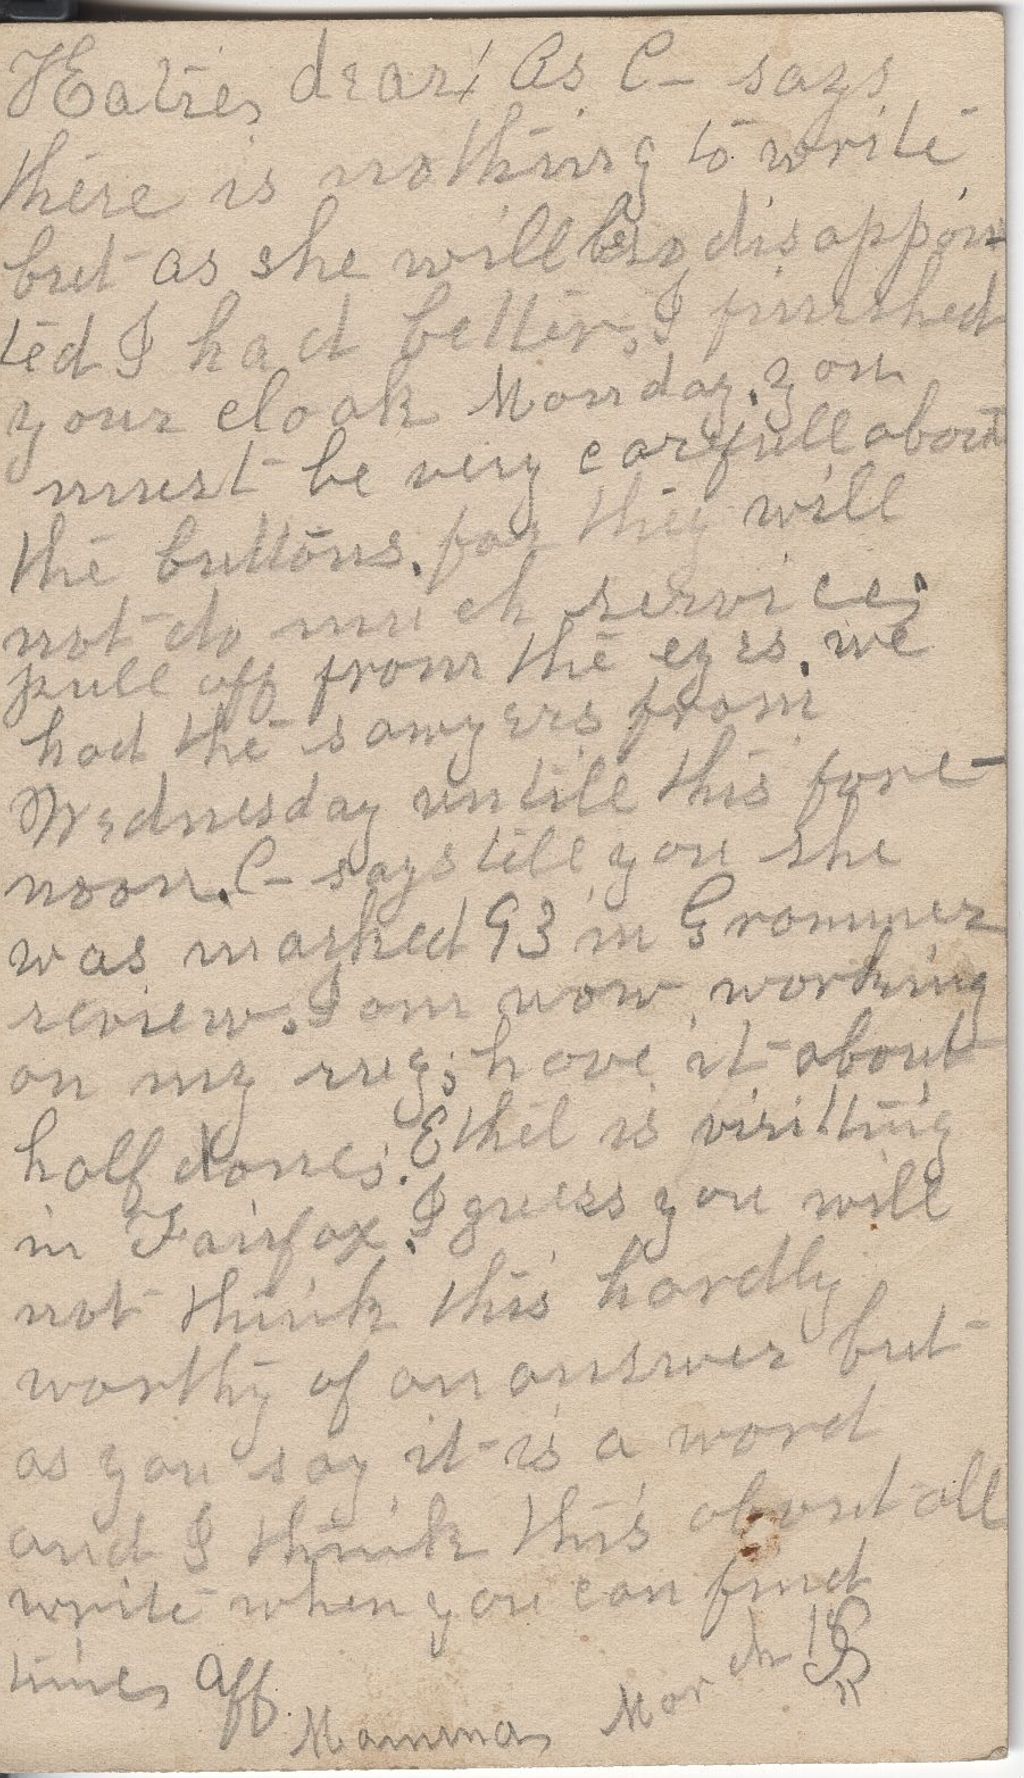 Katie, dear! As C- says
there is nothing to write
but as she will be so disappoin
ted I had better, I finished
your cloak Monday, you
must be very carefull about
the buttons. for they will
not do much service;
pull off from the eyes. we
had the sawyers from
Wednesday untill this fore-
noon. C- says tell you she
was marked 93 in Grammer
review. I am now working
on my rug; have it about
half done. Ethel is visitting
in Fairfax. I guess you will
not think this hardly
worthy of an answer but
as you say it is a word
and I think this about all
write when you can find
time, Aff.
Mamma, March